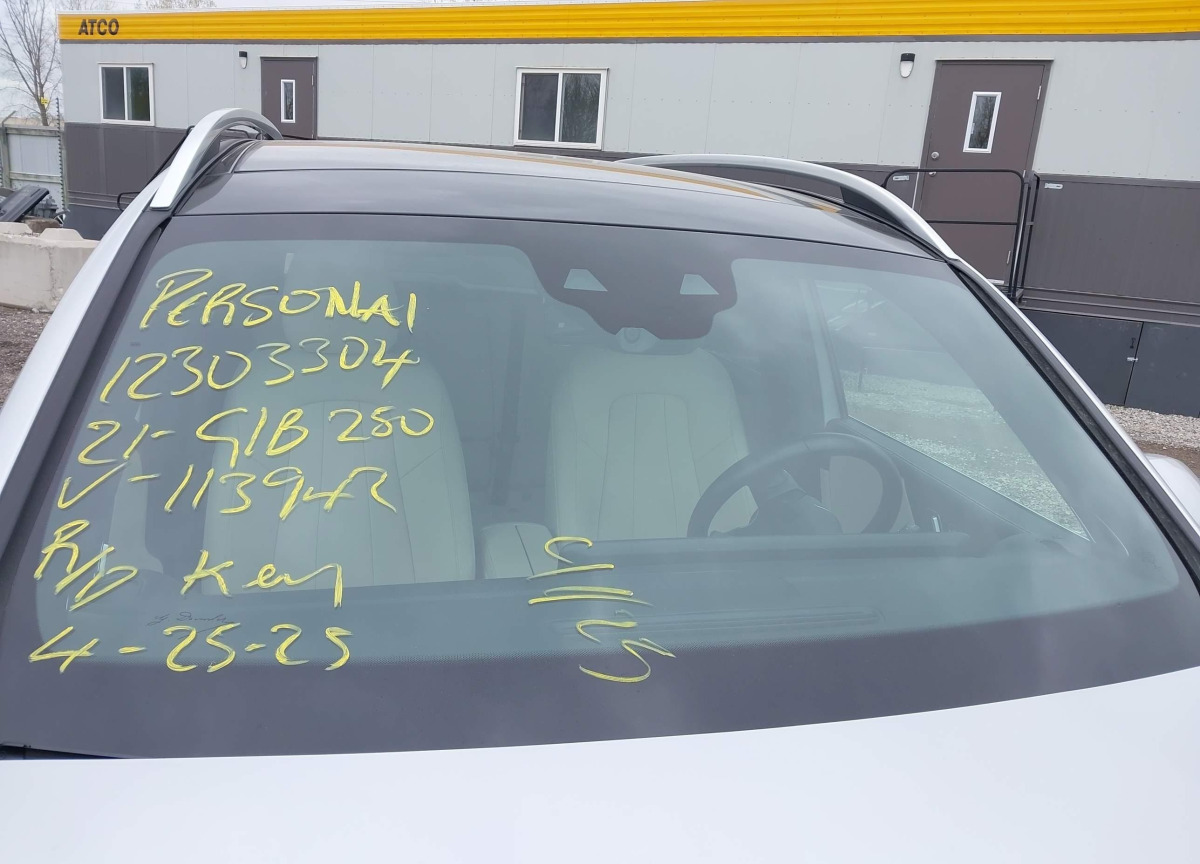 ATCO
PERSONAL
12303304
21- GLB 250
V-113942
R/D Key
4-25-25